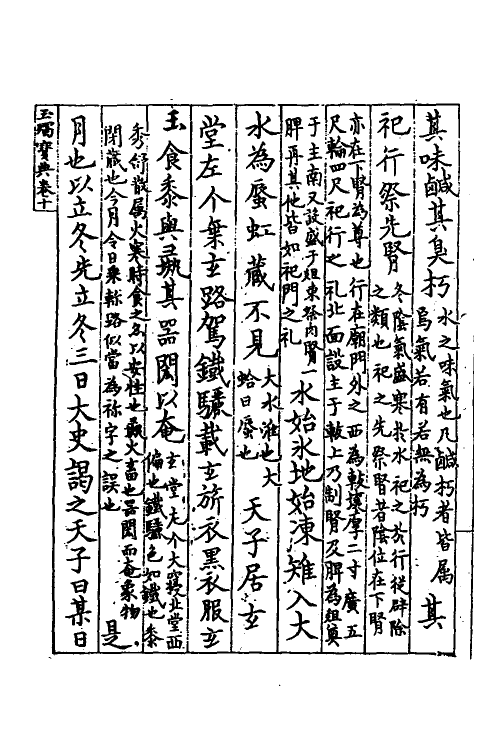 其味鹹其臭朽水之味氣也凡鹹朽者皆属焉氣若有若無為朽其
祀行祭先腎冬陰氣盛寒於水祀之於行從辟除之類也祀之先祭腎者陰位在下腎
亦在下腎為尊也行在廟門外之西為軷壤厚二寸廣五尺輪四尺祀行之礼北面設主于軷上乃制腎及脾為俎奠
于主南又設盛于俎東祭肉腎一脾再其他皆如祀門之礼水始氷地始凍雉入大
水為蜃虹藏不見大水淮也大蛤曰蜃也天子居玄
堂左个乗玄路駕鐵驪載玄旂衣黒衣服玄
玉食黍與彘其器閎以奄玄堂左个大寢北堂西偏也鐵驪色如鐵也黍
秀舒散属火寒時食之亦以安性也彘火畜也器閎而奄象物閉蔵也今月令曰乗軫路似當為袗字之誤也是
月也以立冬先立冬三日大史謁之天子曰某日
玉燭寶典卷十